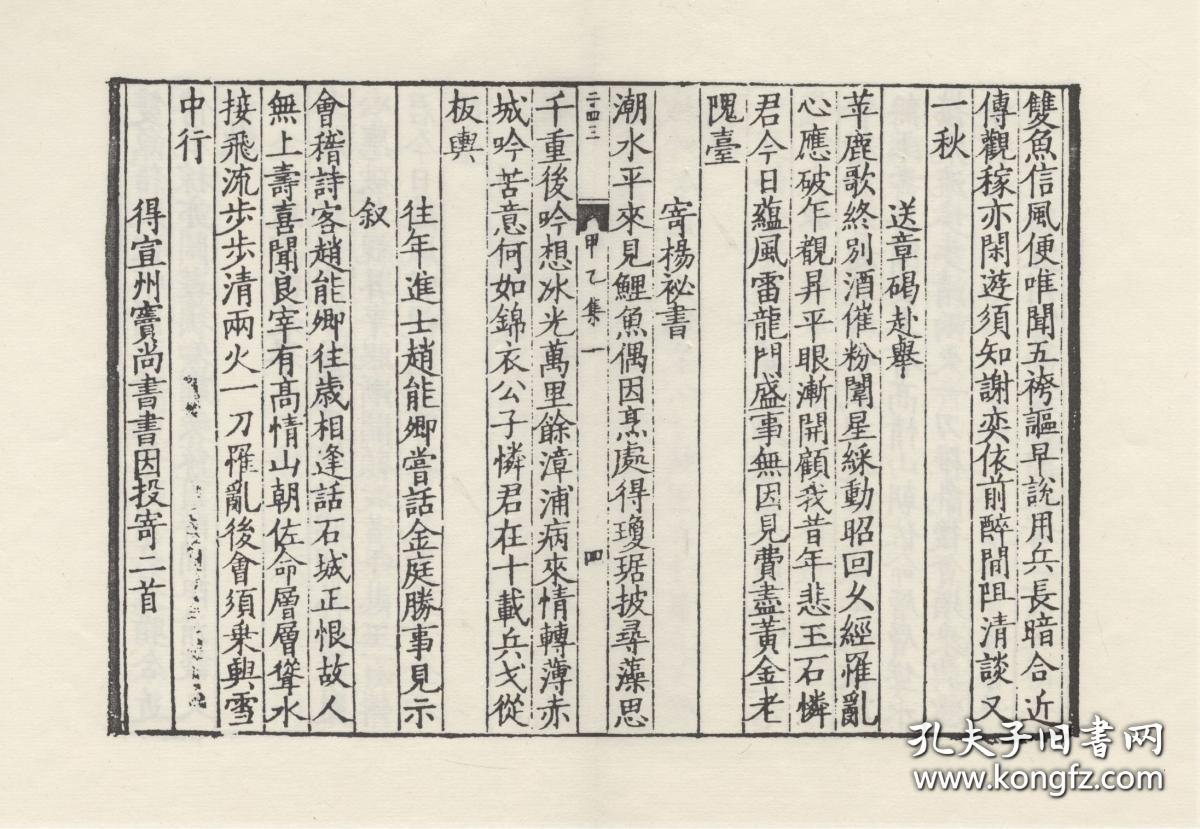 雙魚信風便唯聞五袴謳早說用兵長暗合近
傳觀稼亦閑遊須知謝奕依前醉閒阻清談又
一秋
送章碣赴舉
苹鹿歌終別酒催粉闈星綵動昭回久經罹亂
心應破乍覩昇平眼漸開顧我昔年悲玉石憐
君今日蘊風雷龍門盛事無因見費盡黃金老
隗臺
寄楊祕書
潮水平來見鯉魚偶因烹處得瓊琚披尋藻思
二四三
甲乙集一
四
千重後吟想冰光萬里餘漳浦病來情轉薄赤
城吟苦意何如錦衣公子憐君在十載兵戈從
板輿
往年進士趙能卿嘗話金庭勝事見示
叙
會稽詩客趙能卿往歲相逢話石城正恨故人
無上壽喜聞良宰有高情山朝佐命層層聳水
接飛流步步清兩火一刀罹亂後會須乗興雪
中行
得宣州竇尚書書因投寄二首
孔夫子旧书网
www.kongfz.com